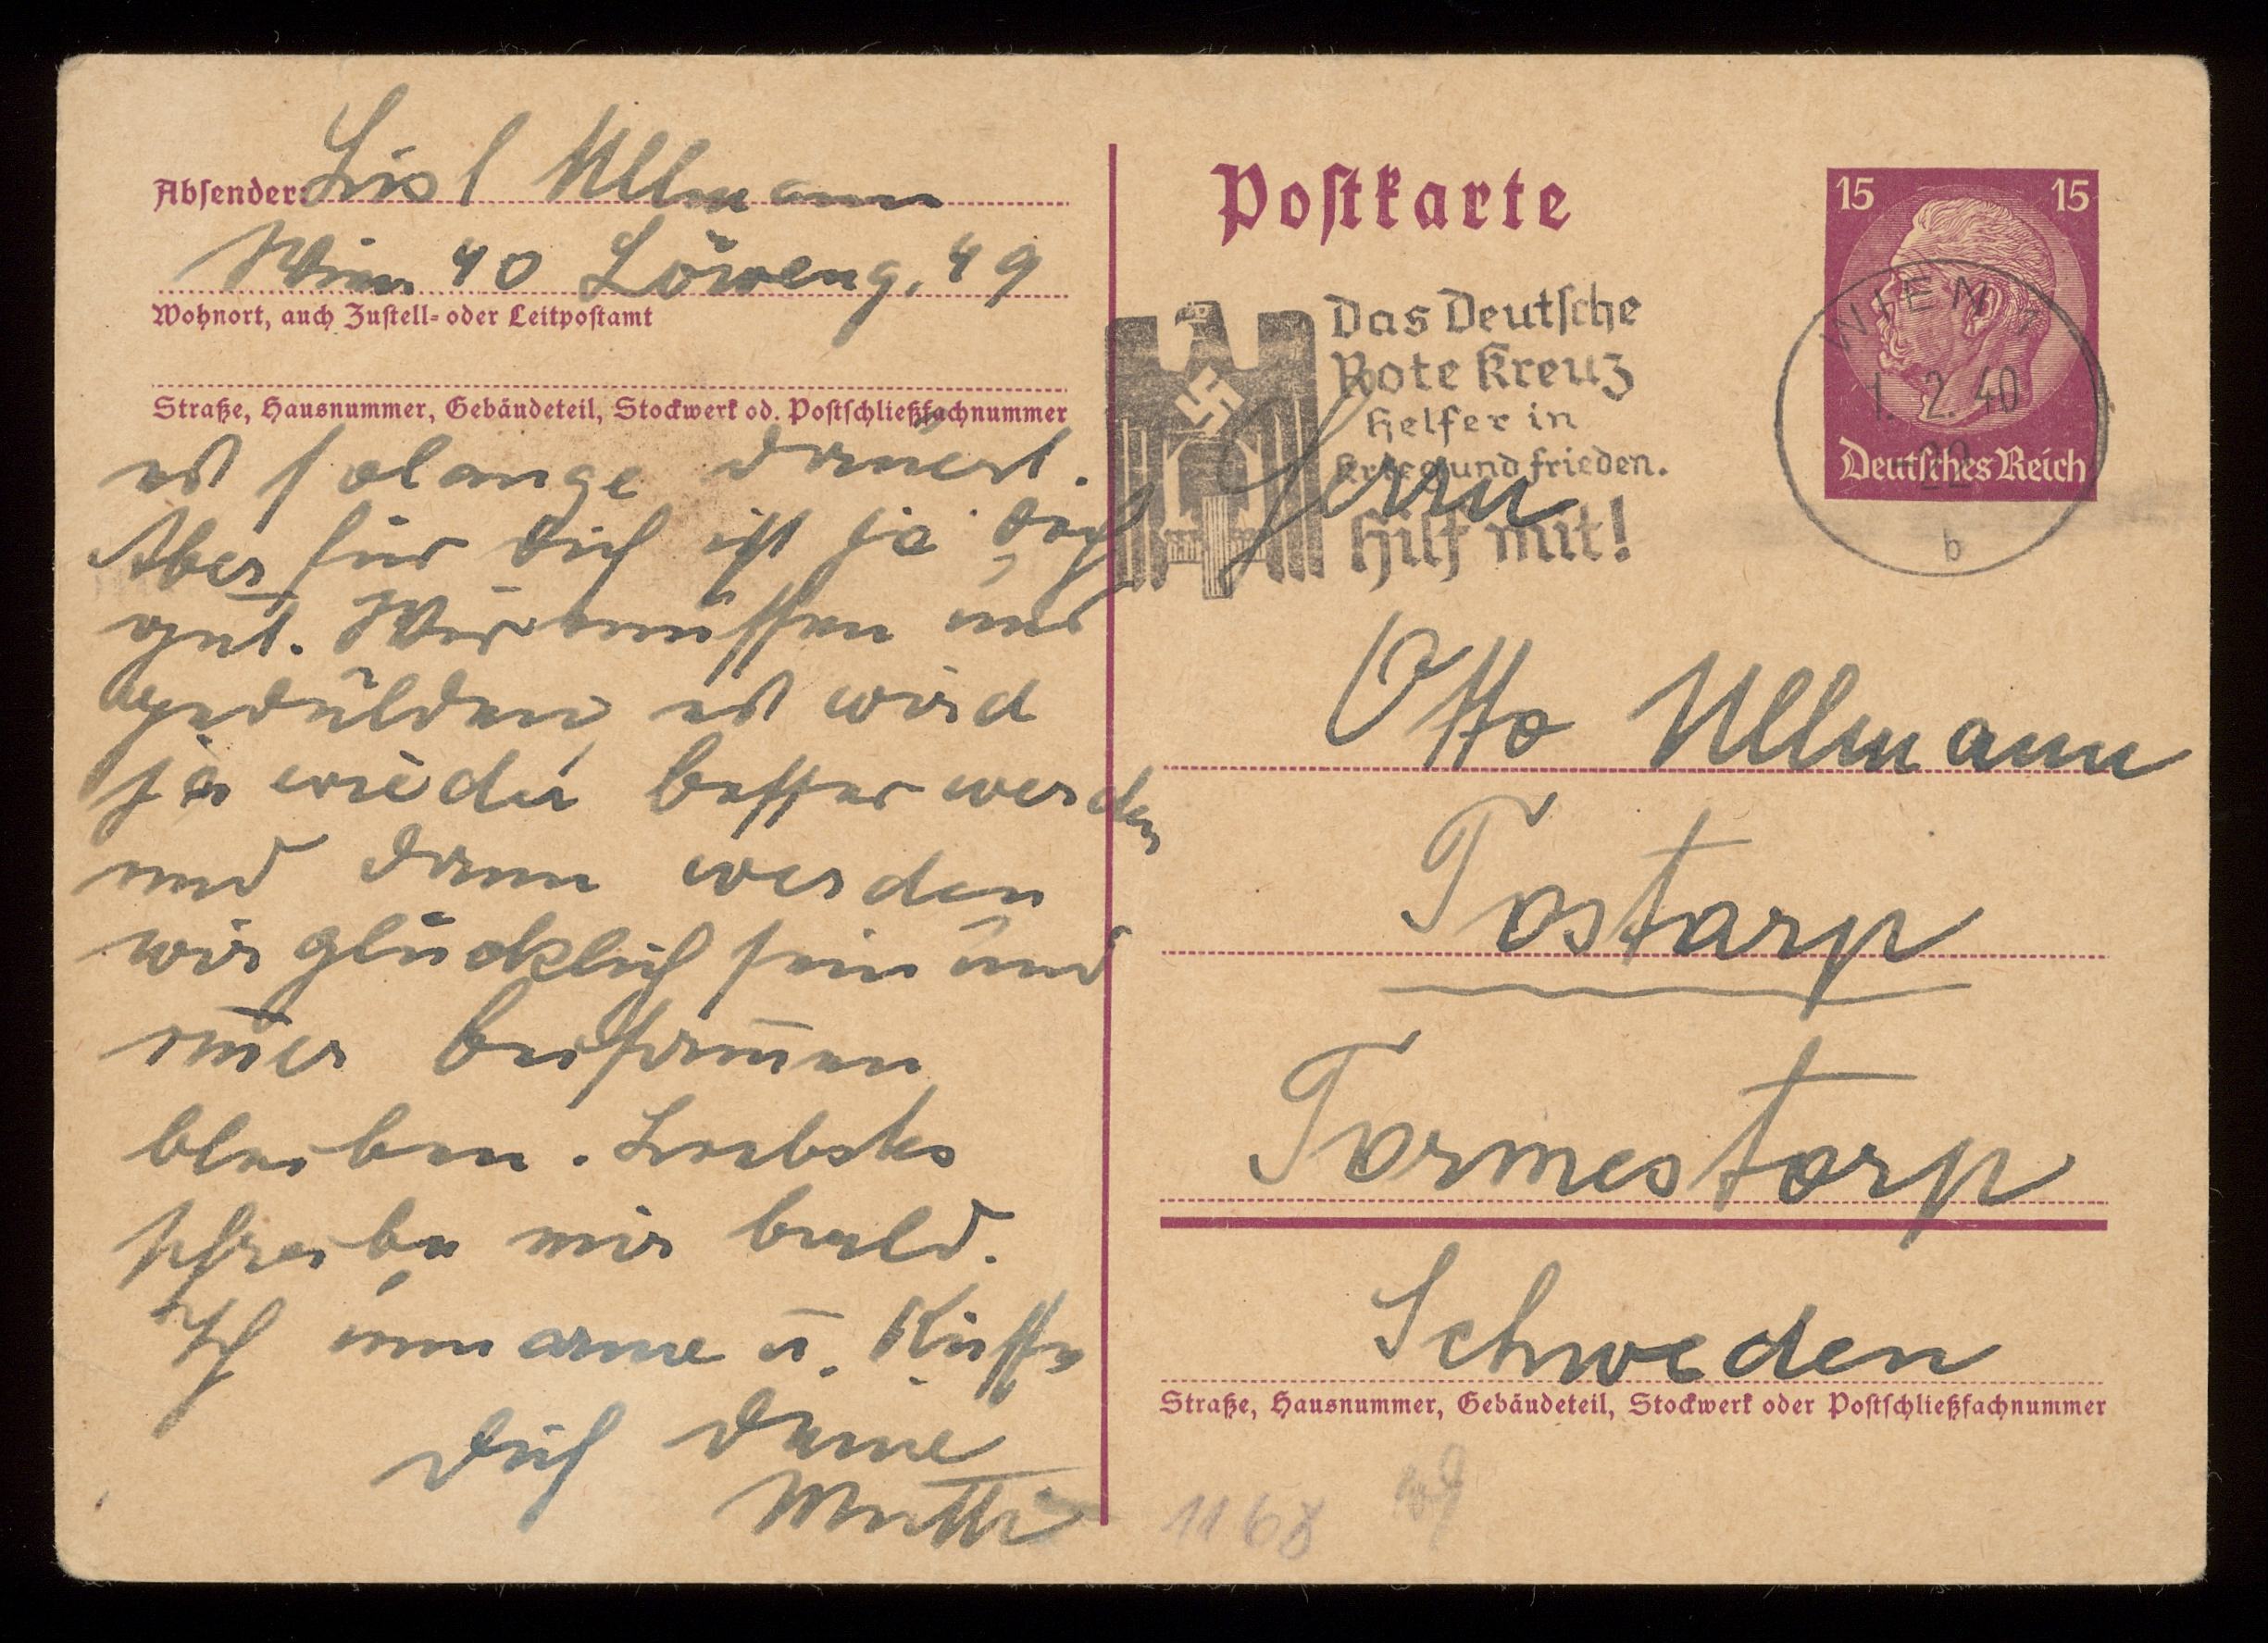 Absender: Lisl Ullmann
Wien 40 Löweng. 49
Wohnort, auch Zustell- oder Leitpostamt
Straße, Hausnummer, Gebäudeteil, Stockwerk od. Postschließfachnummer
es solange dauert.
Aber für Dich ist ja doch
gut. Wir müssen uns
gedulden, es wird
ja wieder besser werden
und dann werden
wir glücklich sein und
im̄er beisam̄en
bleiben. Liebstes
schreibe mir bald.
Ich umarme u. Küsse
Dich Deine
Mutti
Postkarte
15 15
Deutsches Reich
WIEN
1. 2. 40
22
b
Das Deutsche
Rote Kreuz
Helfer in
Krieg und Frieden.
Hilf mit!
Herrn
Otto Ullmann
Tostarp
Tormestorp
Schweden
Straße, Hausnummer, Gebäudeteil, Stockwerk oder Postschließfachnummer
1168